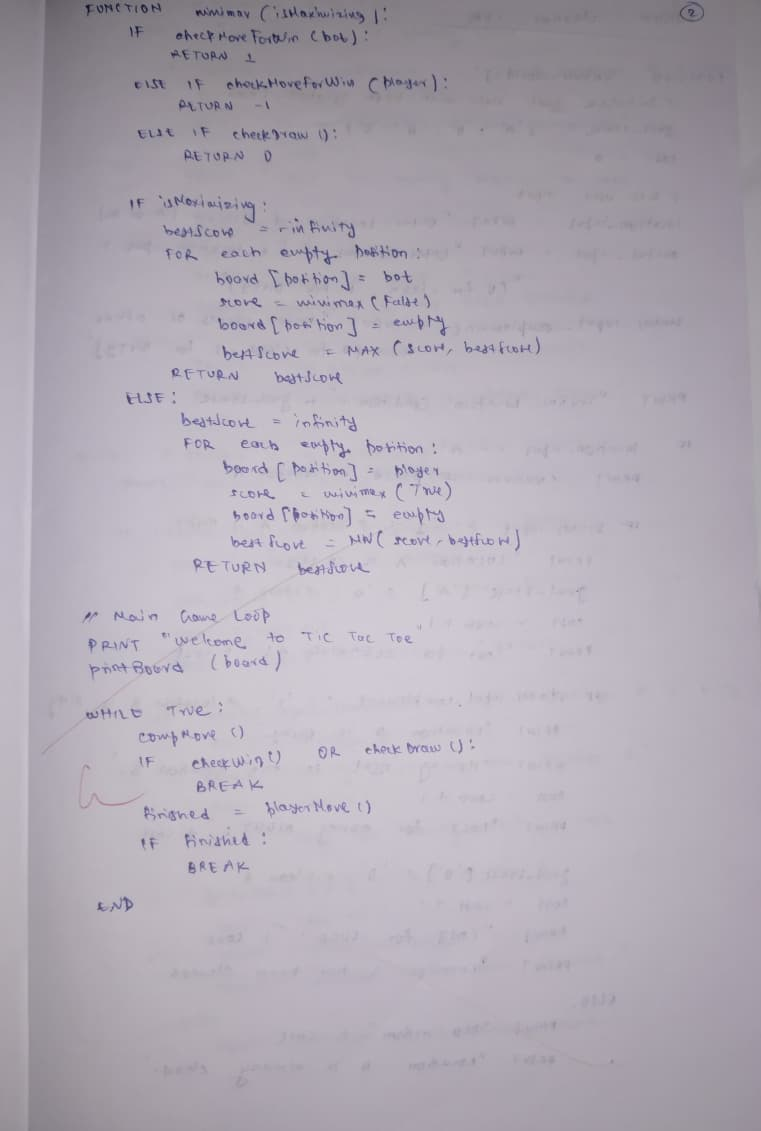 2
FUNCTION minimax (isMaximizing):
IF checkMoveForWin (bot):
RETURN 1
ELSE IF checkMoveForWin (player):
RETURN -1
ELSE IF checkDraw ():
RETURN 0
IF isMaximizing:
bestScore = -infinity
FOR each empty position:
board [position] = bot
score = minimax (False)
board [position] = empty
bestScore = MAX (score, bestScore)
RETURN bestScore
ELSE:
bestScore = infinity
FOR each empty position:
board [position] = player
score = minimax (True)
board [position] = empty
bestScore = MIN (score, bestScore)
RETURN bestScore
// Main Game Loop
PRINT "Welcome to Tic Tac Toe"
printBoard (board)
WHILE True:
compMove ()
IF checkWin () OR checkDraw ():
BREAK
finished = playerMove ()
IF finished:
BREAK
END